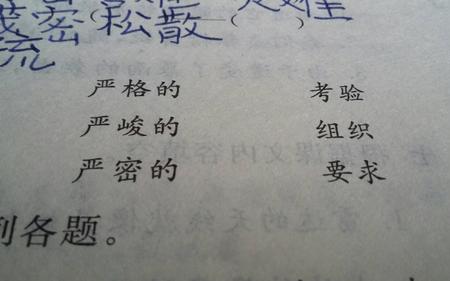 茂密(松散—( )
流
严格的 考验
严峻的 组织
严密的 要求
列各题。